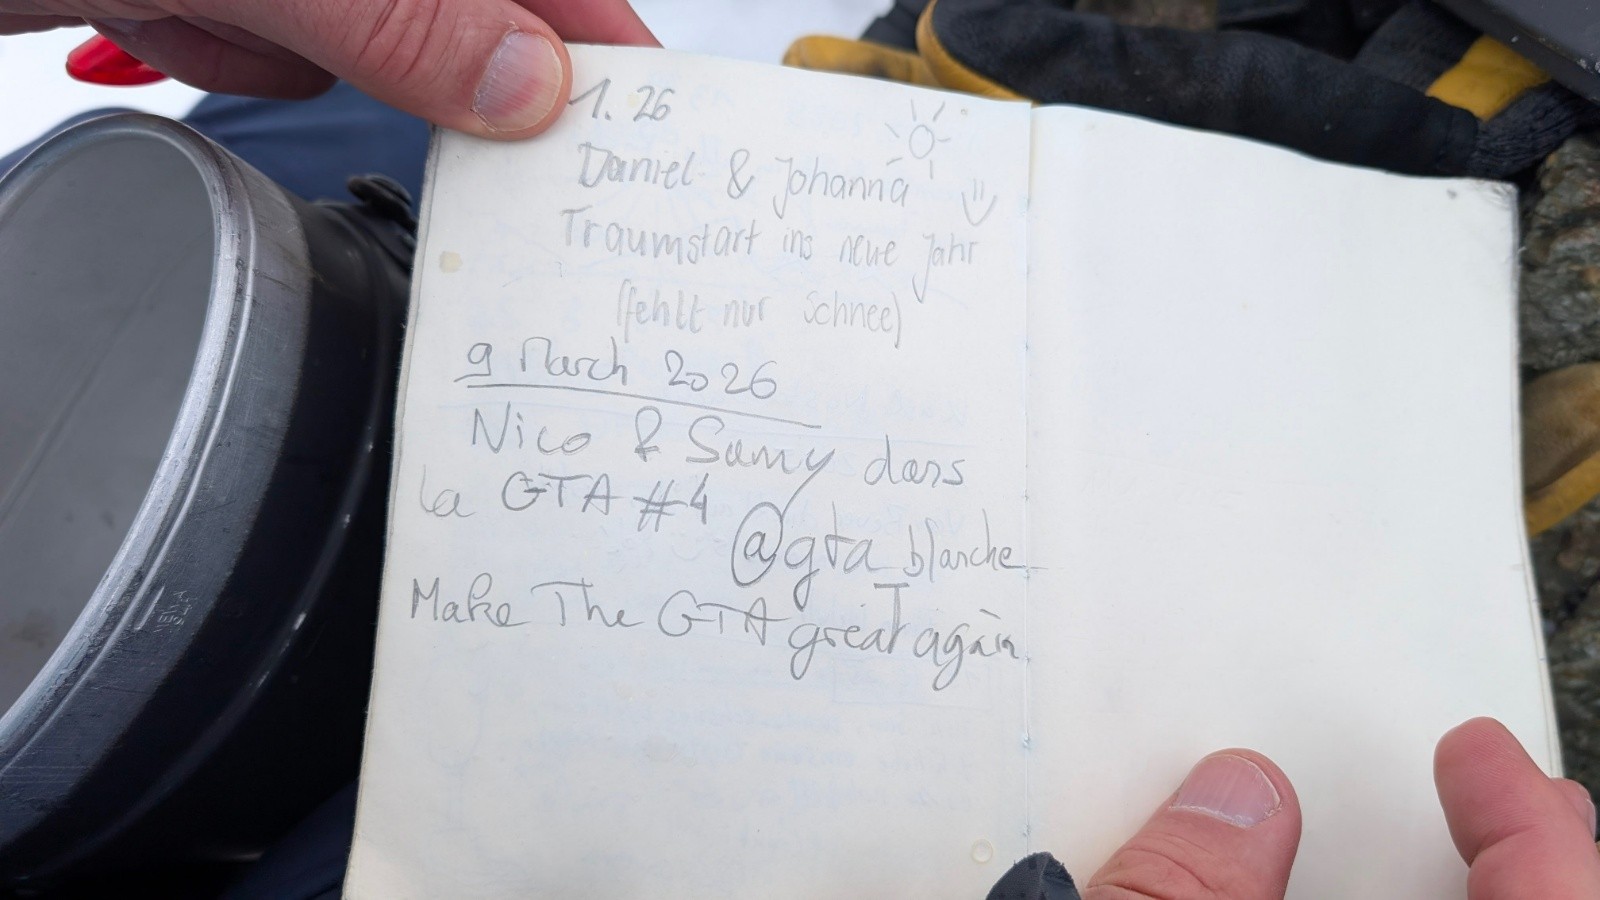 1. 26
Daniel & Johanna
Traumstart ins neue Jahr
(fehlt nur Schnee)
9 March 2026
Nico & Samy dans
la GTA #4
@gta_blanche_
Make The GTA great again